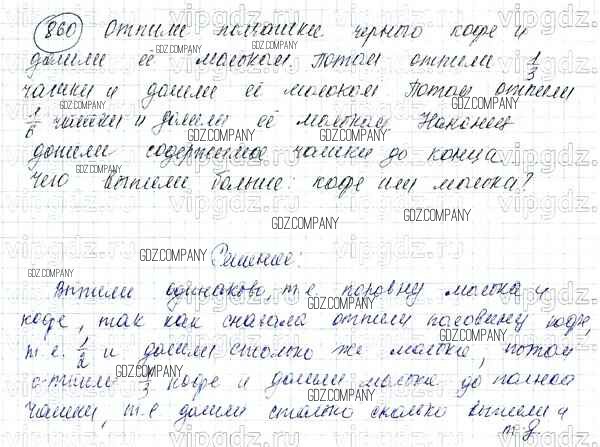 860 Отпили полчашки черного кофе и
долили её молоком. Потом отпили 1/3
чашки и долили её молоком Потом отпили
1/6 чашки и долили её молоком Наконец
допили содержимое чашки до конца.
Чего выпили больше: кофе или молока?
Решение:
Выпили одинаково, т.е. поровну молока и
кофе, так как сначала отпили половину кофе,
т.е. 1/2 и долили столько же молока, потом
отпили 1/3 кофе и долили молока до полной
чашки, т.е долили столько сколько выпили и
т д.